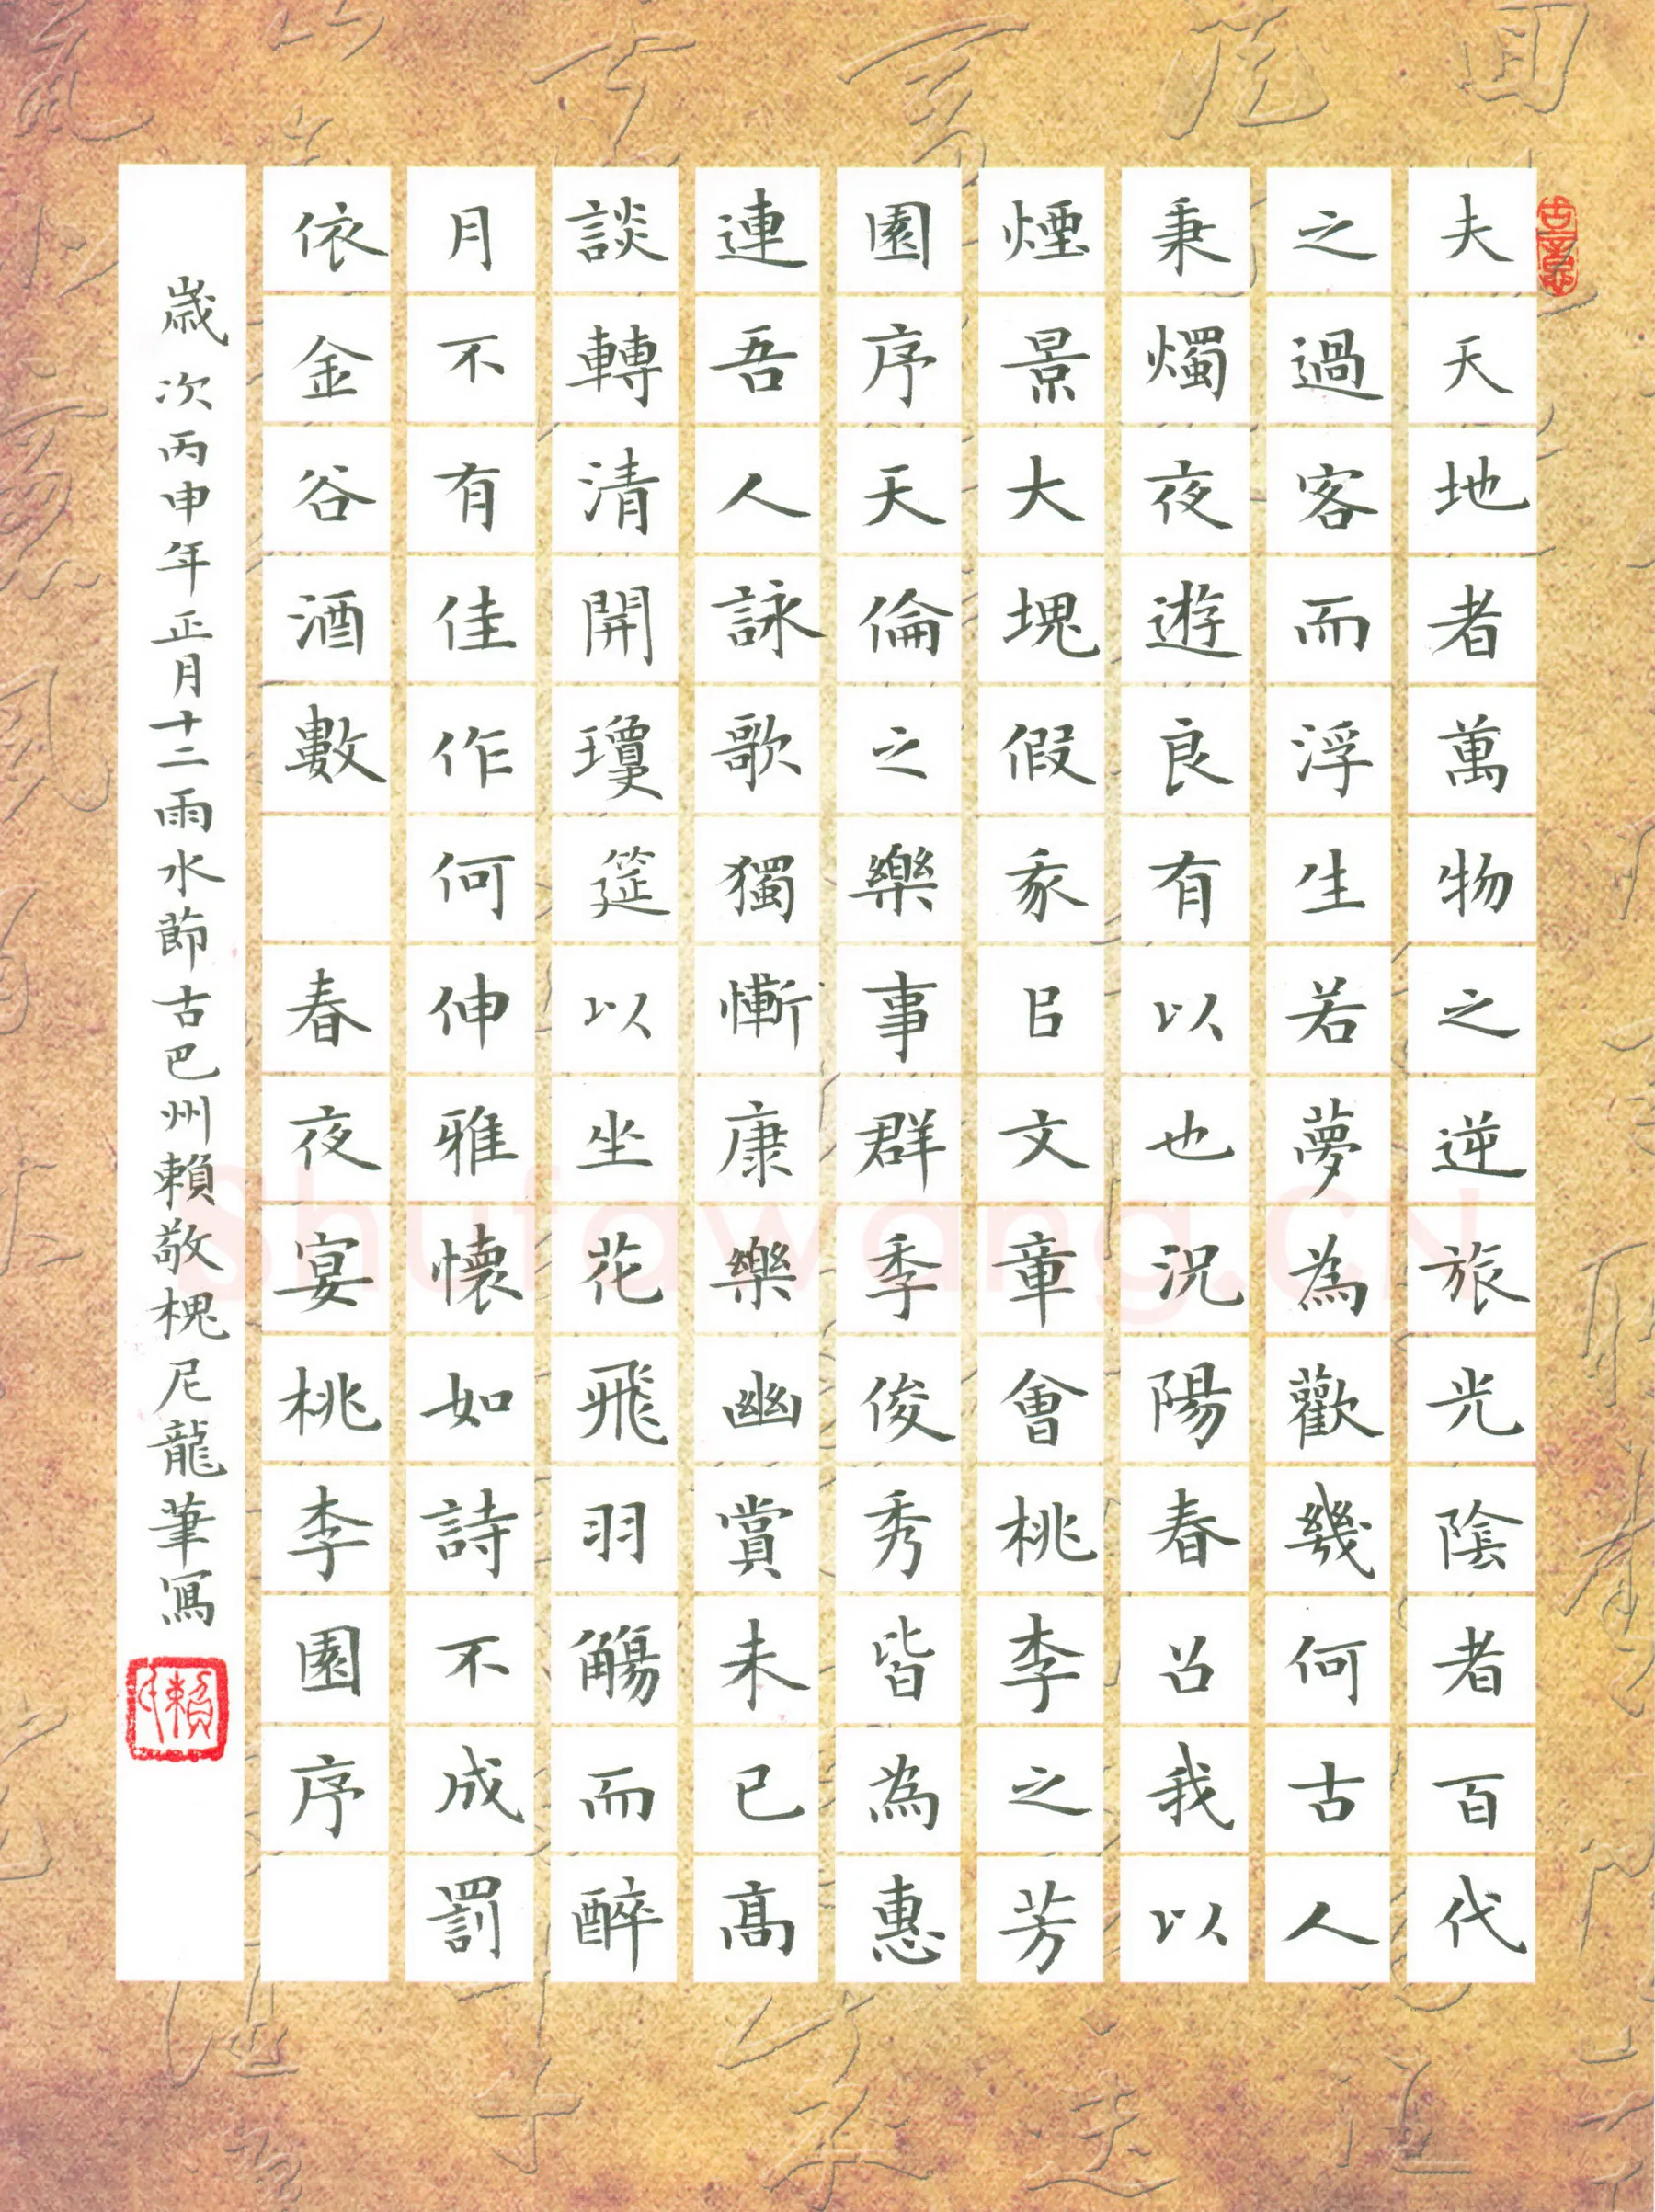 古意
夫天地者萬物之逆旅光陰者百代
之過客而浮生若夢為歡幾何古人
秉燭夜遊良有以也況陽春召我以
煙景大塊假豖㠯文章會桃李之芳
園序天倫之樂事群季俊秀皆為惠
連吾人詠歌獨慚康樂幽賞未已高
談轉清開瓊筵以坐花飛羽觴而醉
月不有佳作何伸雅懷如詩不成罰
依金谷酒數 春夜宴桃李園序
歲次丙申年正月十二雨水節古巴州賴敬槐尼龍筆寫
Shufawang.CN